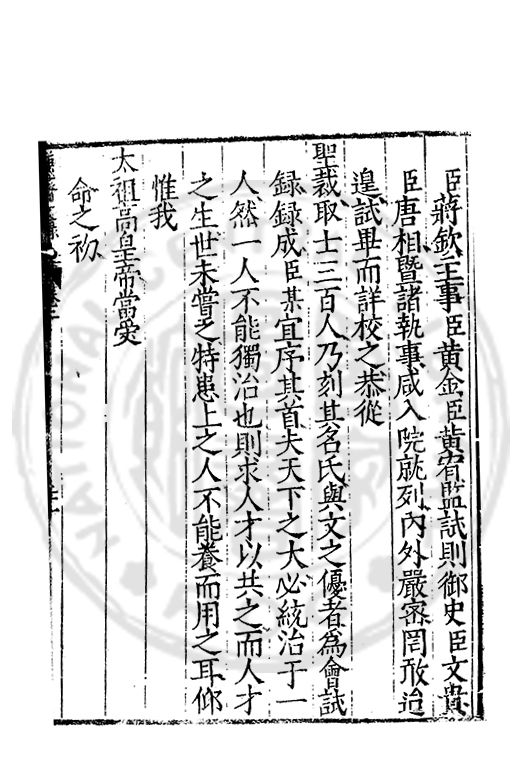 臣蔣欽主事臣黃金臣黃宥監試則御史臣文貴
臣唐相暨諸執事咸入院就列內外嚴密罔敢迨
遑試畢而詳校之恭從
聖裁取士三百人乃刻其名氏與文之優者為會試
録録成臣某宜序其首夫天下之大必統治于一
人然一人不能獨治也則求人才以共之而人才
之生世未嘗乏特患上之人不能養而用之耳仰
惟我
太祖高皇帝當受
命之初